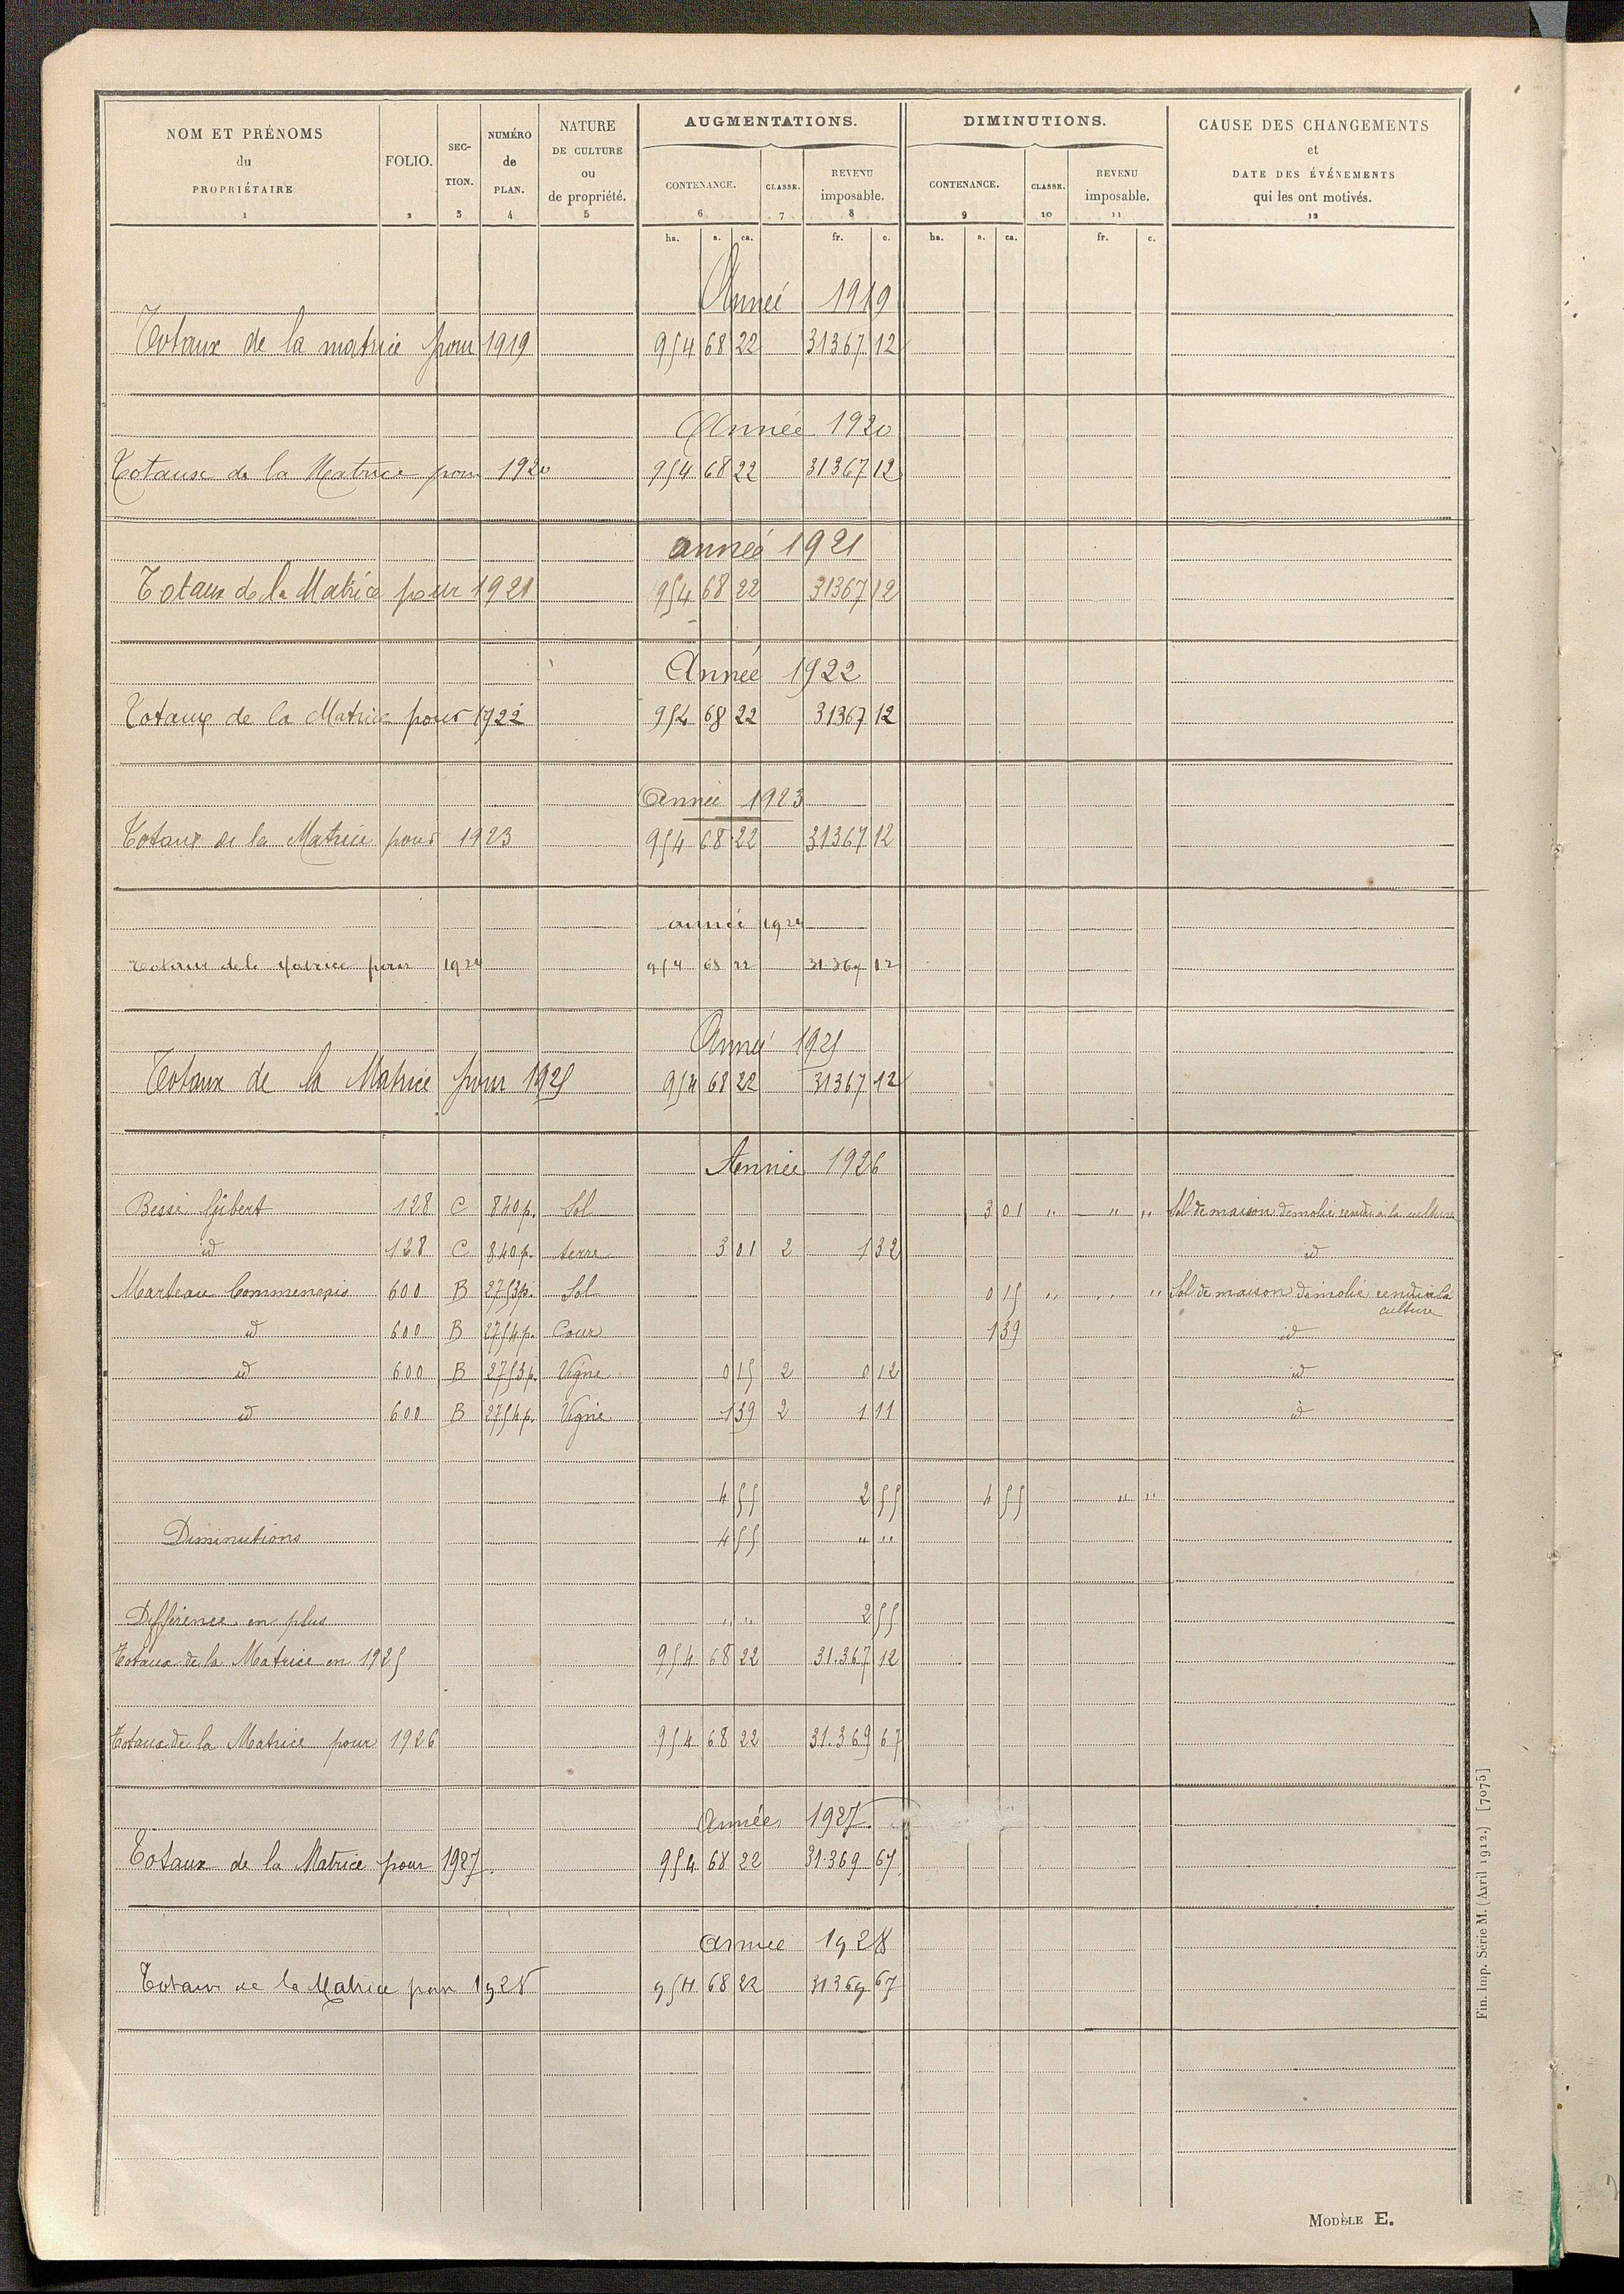 NOM ET PRÉNOMS du PROPRIÉTAIRE 1 FOLIO. 2 SECTION. 3 NUMÉRO de PLAN. 4 NATURE DE CULTURE ou de propriété. 5 AUGMENTATIONS. CONTENANCE. 6 CLASSE. 7 REVENU imposable. 8 DIMINUTIONS. CONTENANCE. 9 CLASSE. 10 REVENU imposable. 11 CAUSE DES CHANGEMENTS et DATE DES ÉVÉNEMENTS qui les ont motivés. 12
ha. a. ca. fr. c. ha. a. ca. fr. c.
Année 1919
Totaux de la matrice pour 1919 954 68 22 31367 12
Année 1920
Totaux de la Matrice pour 1920 954 68 22 31367 12
année 1921
Totaux de la Matrice pour 1921 954 68 22 31367 12
Année 1922
Totaux de la Matrice pour 1922 954 68 22 31367 12
Année 1923
Totaux de la Matrice pour 1923 954 68 22 31367 12
année 1924
Totaux de la Matrice pour 1924 954 68 22 31.367 12
Année 1925
Totaux de la Matrice pour 1925 954 68 22 31367 12
Année 1926
Besse Gilbert 128 C 840p. Sol 3 01 " " " Sol de maison démolie rendu à la culture
id 128 C 840p. terre 3 01 2 1 32 id
Marteau 600 B 2753p. Sol 0 15 " " " Sol de maison démolie rendu à la culture
id 600 B 2754p. Cour 1 39 id
id 600 B 2753p. Vigne 0 15 2 0 12 id
id 600 B 2754p. Vigne 1 39 2 1 11 id
4 55 2 55 4 55 " "
Diminutions 4 55 " "
Différence en plus " " 2 55
Totaux de la Matrice en 1925 954 68 22 31.367 12
Totaux de la Matrice pour 1926 954 68 22 31.369 67
Année 1927.
Totaux de la Matrice pour 1927. 954 68 22 31.369 67
année 1928
Totaux de la Matrice pour 1928 954 68 22 31369 67
Fin. Imp. Série M. (Avril 1912.) [7075]
MODÈLE E.